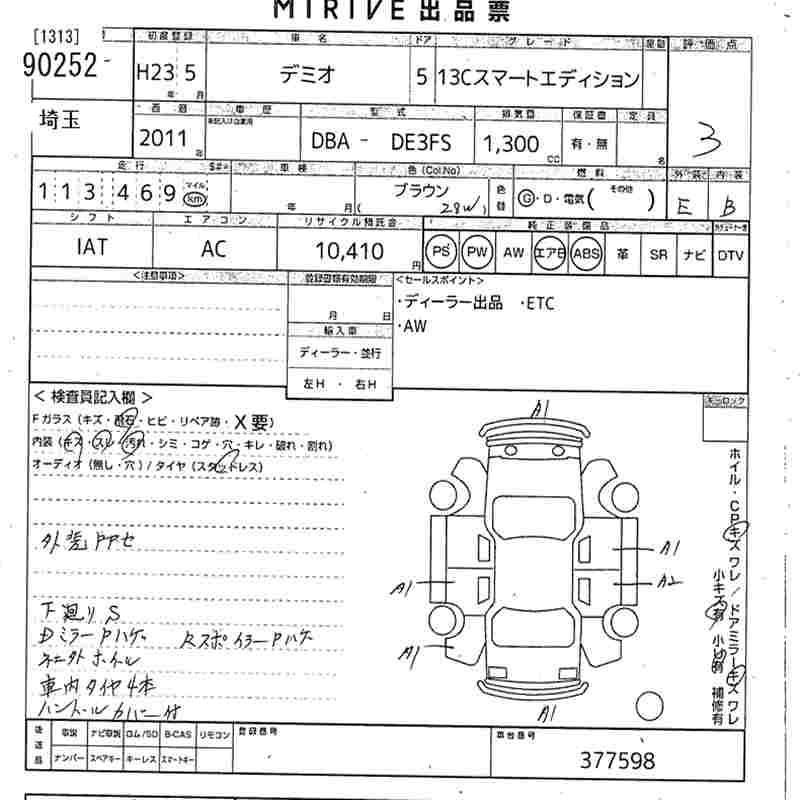 MIRIVE 出品票
[1313] 初度登録 車名 ドア グレード 評価点
90252 H23 5 デミオ 5 13Cスマートエディション 3
年 月
埼玉 西暦 車歴 型式 排気量 保証書 定員
2011 DBA - DE3FS 1,300 CC 有・無 名
走行 車検 色(Col.No) 燃料 外装 内装
113,469 マイル km 年 月 ブラウン (28W) 色替 G・D・電気( その他 ) E B
シフト エアコン リサイクル預託金 純正装備品
IAT AC 10,410 円 PS PW AW エアB ABS 革 SR ナビ DTV
<注意事項> 登録書類有効期限 <セールスポイント>
月 日 ・ディーラー出品 ・ETC
輸入車 ・AW
ディーラー・並行
左H ・ 右H
<検査員記入欄> キーロック
Fガラス (キズ・飛石・ヒビ・リペア跡・X要)
内装 (キズ・スレ・汚れ・シミ・コゲ・穴・キレ・破れ・割れ)
オーディオ (無し・穴) / タイヤ (スタッドレス)
A1
A1
A2
A1
A1
A1
ホイル・CPキズワレ/ドアミラーキズワレ
小キズ有 小凹有 補修有
下廻りS
Dミラー Pハゲ RスポイラーPハゲ
車内タイヤ4本
後送品 取説 ナビ取説 ロム/SD B-CAS リモコン 登録番号 車台番号
ナンバー スペアキー キーレス スマートキー 377598